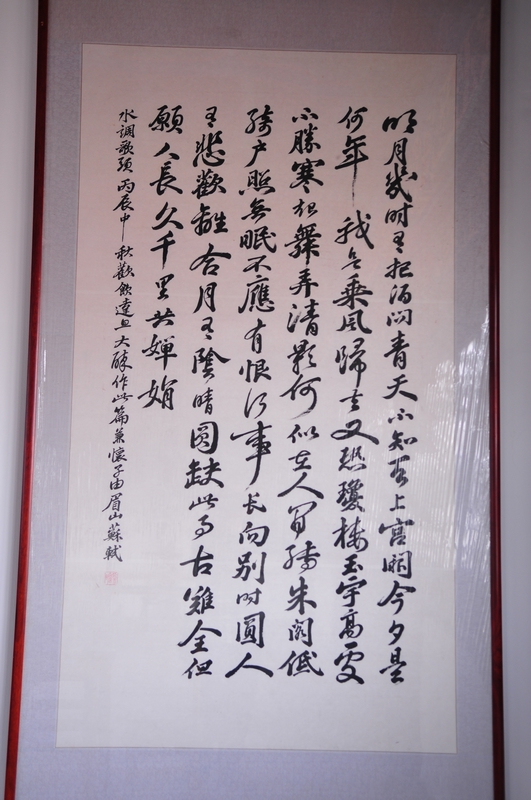 明月幾时有把酒问青天不知天上宫阙今夕是
何年我欲乘风歸去又恐瓊楼玉宇高处
不勝寒起舞弄清影何似在人间轉朱阁低
綺户照無眠不應有恨何事长向别时圆人
有悲歡離合月有陰晴圆缺此事古難全但
願人長久千里共嬋娟
水調歌頭丙辰中秋歡飲達旦大醉作此篇兼懷子由眉山蘇軾